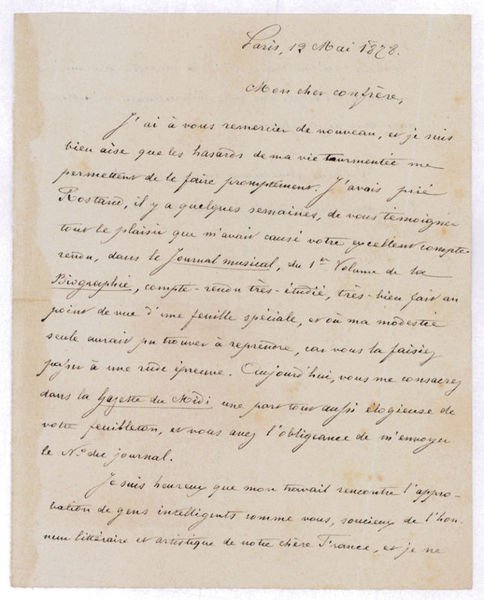 Paris, 12 Mai 1878.
Mon cher confrère,
J'ai à vous remercier de nouveau, et je suis
bien aise que les hasards de ma vie tourmentée me
permettent de le faire promptement. J'avais prié
Rostand, il y a quelques semaines, de vous témoigner
tout le plaisir que m'avait causé votre excellent compte-
rendu, dans le Journal musical, du 1er Volume de la
Biographie, compte-rendu très-étudié, très-bien fait au
point de vue d'une feuille spéciale, et où ma modestie
seule aurait pu trouver à reprendre, car vous la faisiez
passer à une rude épreuve. Aujourd'hui, vous me consacrez
dans la Gazette du Midi une part tout aussi élogieuse de
votre feuilleton, et vous avez l'obligeance de m'envoyer
le No. du journal.
Je suis heureux que mon travail rencontre l'appro-
bation de gens intelligents comme vous, soucieux de l'hon-
neur littéraire et artistique de notre chère France, et je ne